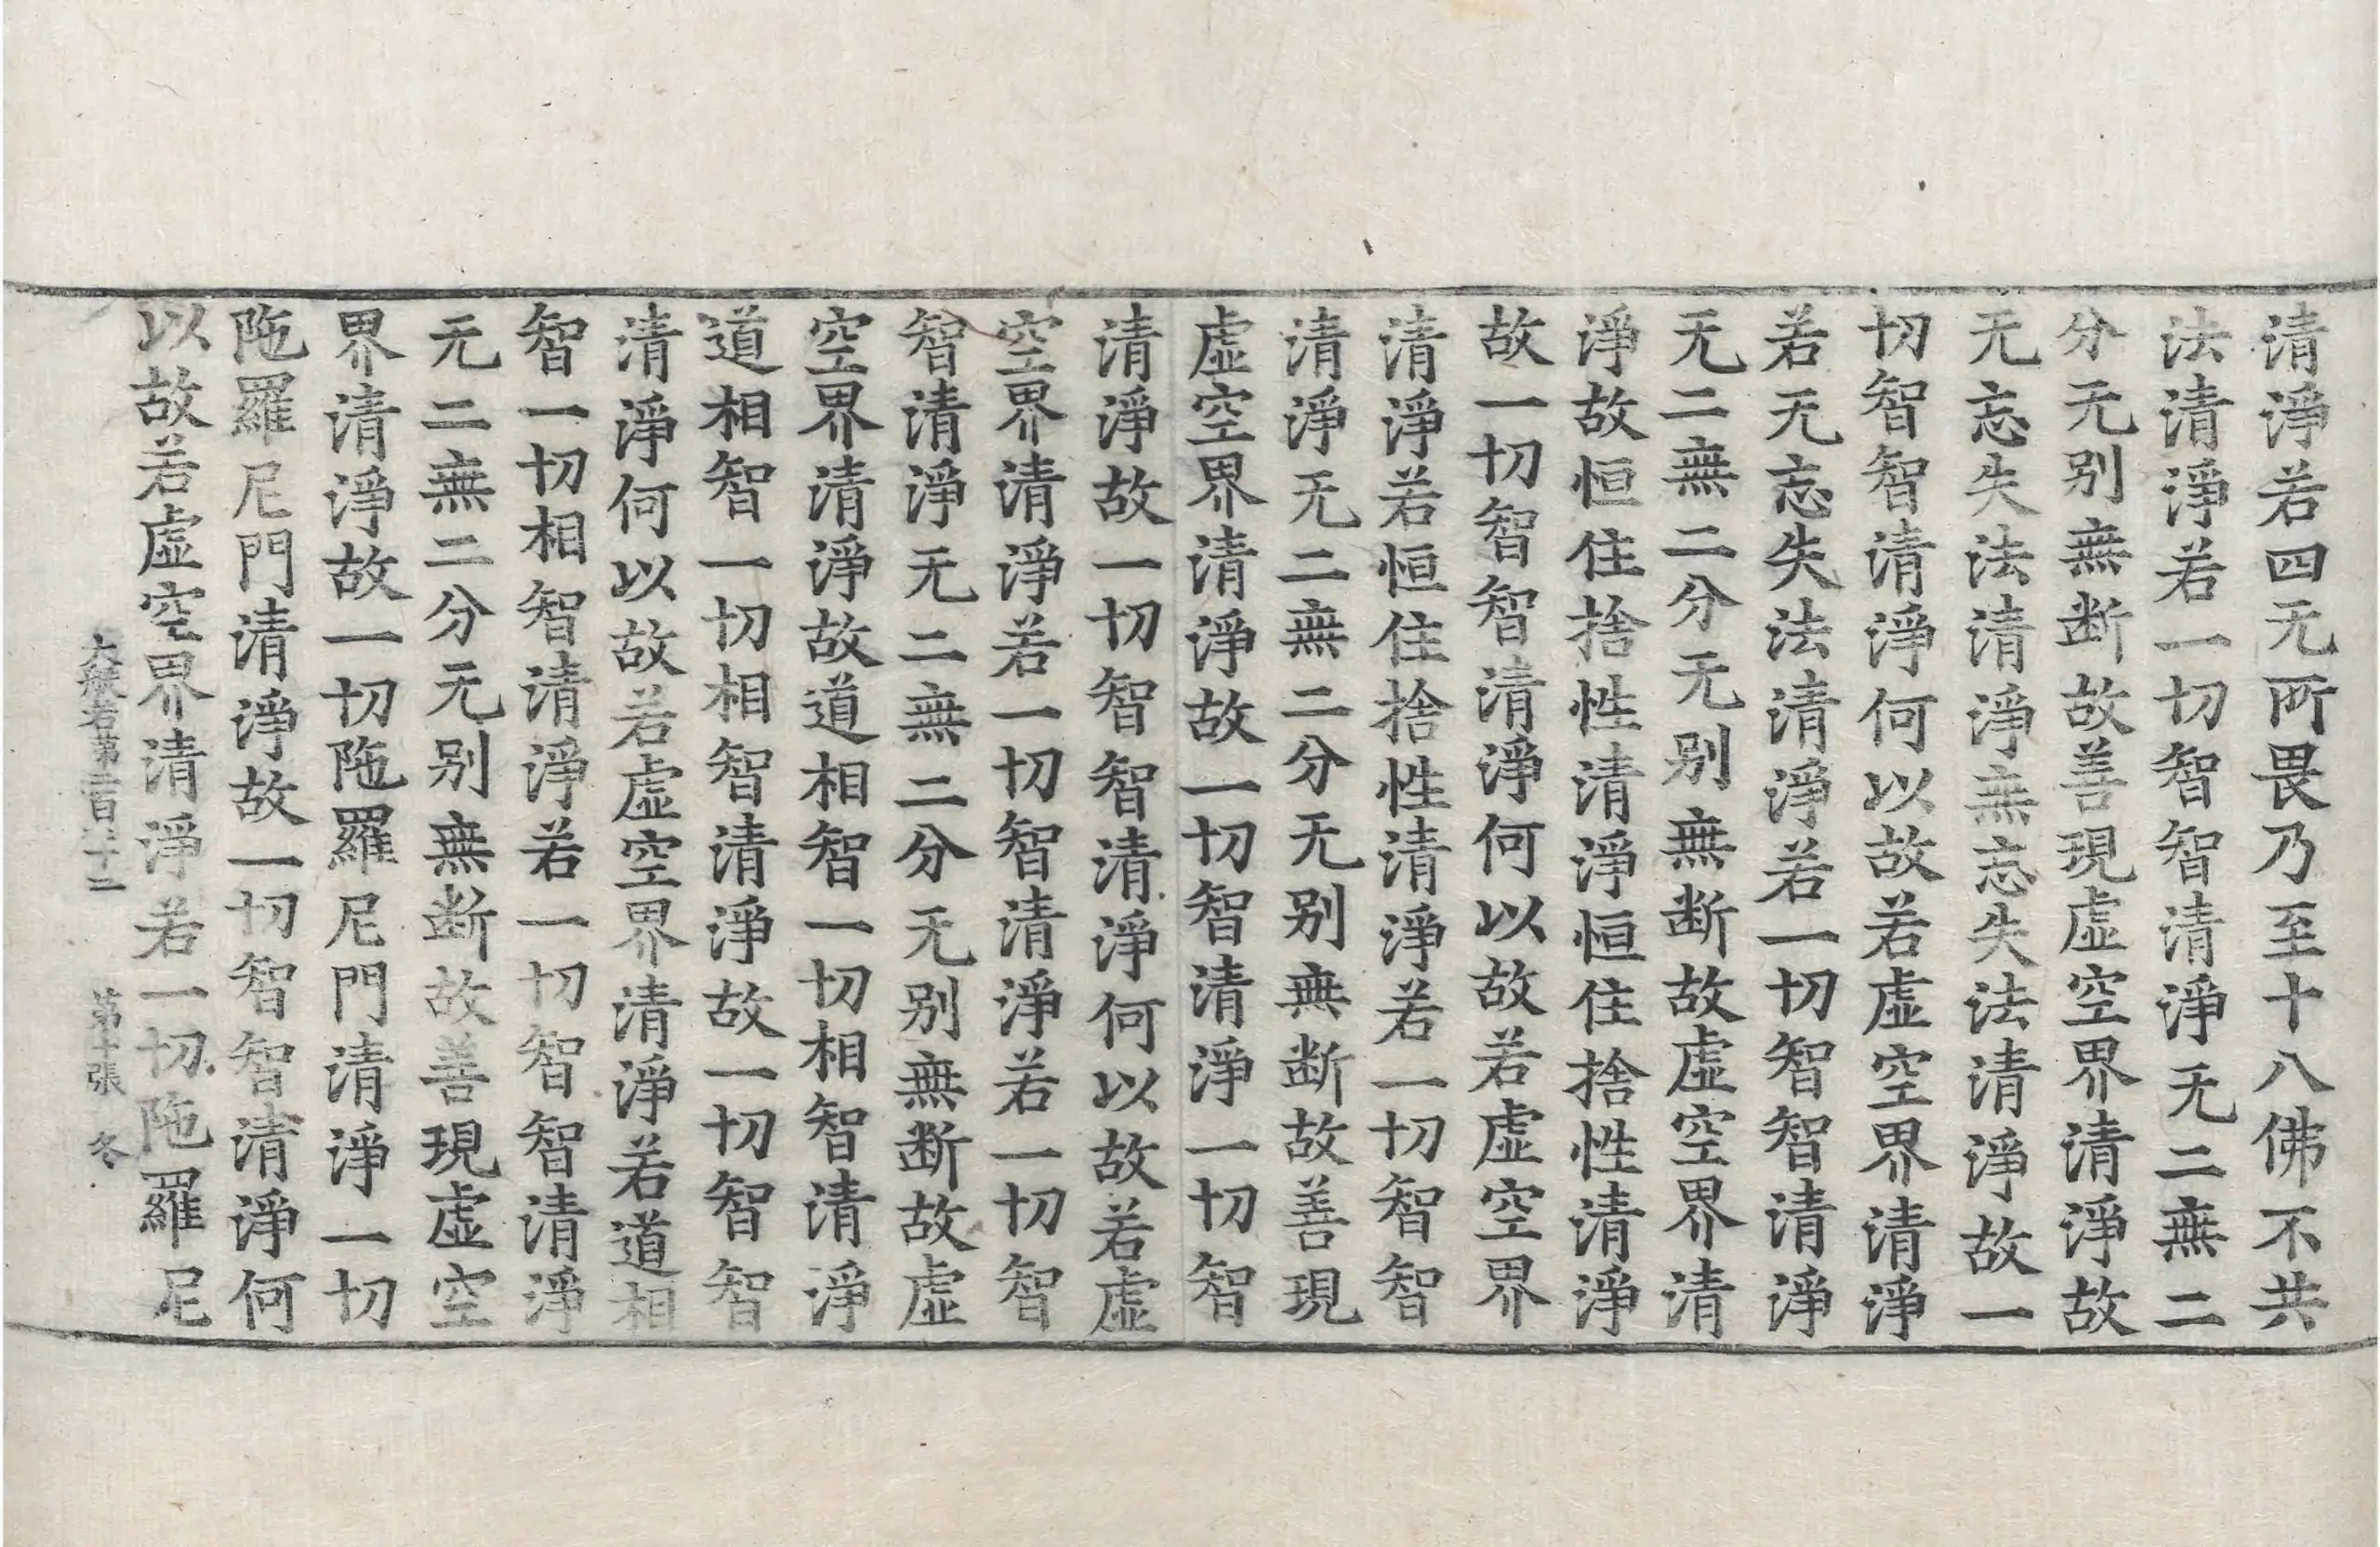 清淨若四无所畏乃至十八佛不共
法清淨若一切智智清淨无二無二
分无别無断故善現虚空界清淨故
无忘失法清淨無忘失法清淨故一
切智智清淨何以故若虚空界清淨
若无忘失法清淨若一切智智清淨
无二無二分无别無断故虚空界清
淨故恒住捨性清淨恒住捨性清淨
故一切智智清淨何以故若虚空界
清淨若恒住捨性清淨若一切智智
清淨无二無二分无别無断故善現
虚空界清淨故一切智清淨一切智
清淨故一切智智清淨何以故若虚
空界清淨若一切智清淨若一切智
智清淨无二無二分无别無断故虚
空界清淨故道相智一切相智清淨
道相智一切相智清淨故一切智智
清淨何以故若虚空界清淨若道相
智一切相智清淨若一切智智清淨
无二無二分无别無断故善現虚空
界清淨故一切陁羅尼門清淨一切
陁羅尼門清淨故一切智智清淨何
以故若虚空界清淨若一切陁羅尼
大般若第二百 十二 第十張 冬